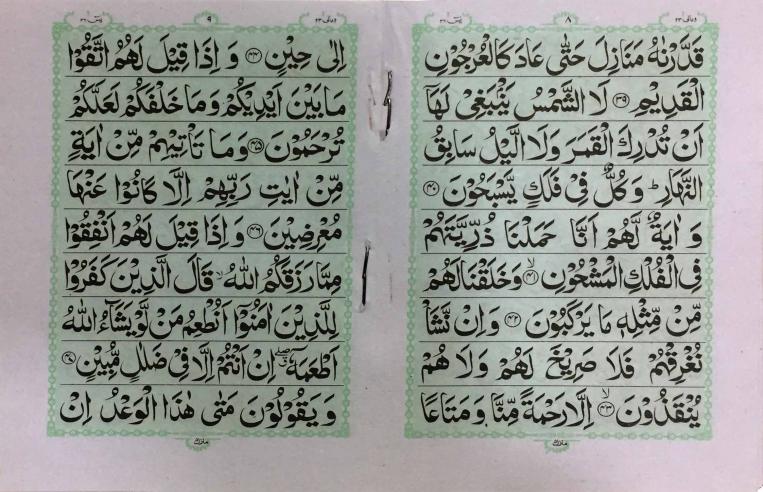 وما لی ۲۳
۸
یٰسٓ ۳۶
قَدَّرْنٰهُ مَنَازِلَ حَتّٰى عَادَ كَالْعُرْجُوْنِ
الْقَدِيْمِ ۝۳۹ لَا الشَّمْسُ يَنْۢبَغِيْ لَهَاۤ
اَنْ تُدْرِكَ الْقَمَرَ وَلَا الَّيْلُ سَابِقُ
النَّهَارِ ؕ وَ كُلٌّ فِيْ فَلَكٍ يَّسْبَحُوْنَ ۝۴۰
وَ اٰيَةٌ لَّهُمْ اَنَّا حَمَلْنَا ذُرِّيَّتَهُمْ
فِي الْفُلْكِ الْمَشْحُوْنِ ۝۴۱ۙ وَخَلَقْنَا لَهُمْ
مِّنْ مِّثْلِهٖ مَا يَرْكَبُوْنَ ۝۴۲ وَاِنْ نَّشَاْ
نُغْرِقْهُمْ فَلَا صَرِيْخَ لَهُمْ وَلَا هُمْ
يُنْقَذُوْنَ ۝۴۳ۙ اِلَّا رَحْمَةً مِّنَّا وَمَتَاعًا
منزل
وما لی ۲۳
۹
یٰسٓ ۳۶
اِلٰى حِيْنٍ ۝۴۴ وَ اِذَا قِيْلَ لَهُمُ اتَّقُوْا
مَا بَيْنَ اَيْدِيْكُمْ وَمَا خَلْفَكُمْ لَعَلَّكُمْ
تُرْحَمُوْنَ ۝۴۵ وَمَا تَاْتِيْهِمْ مِّنْ اٰيَةٍ
مِّنْ اٰيٰتِ رَبِّهِمْ اِلَّا كَانُوْا عَنْهَا
مُعْرِضِيْنَ ۝۴۶ وَ اِذَا قِيْلَ لَهُمْ اَنْفِقُوْا
مِمَّا رَزَقَكُمُ اللّٰهُ ۙ قَالَ الَّذِيْنَ كَفَرُوْا
لِلَّذِيْنَ اٰمَنُوْۤا اَنُطْعِمُ مَنْ لَّوْ يَشَآءُ اللّٰهُ
اَطْعَمَهٗۤ ۖ اِنْ اَنْتُمْ اِلَّا فِيْ ضَلٰلٍ مُّبِيْنٍ ۝۴۷
وَ يَقُوْلُوْنَ مَتٰى هٰذَا الْوَعْدُ اِنْ
منزل